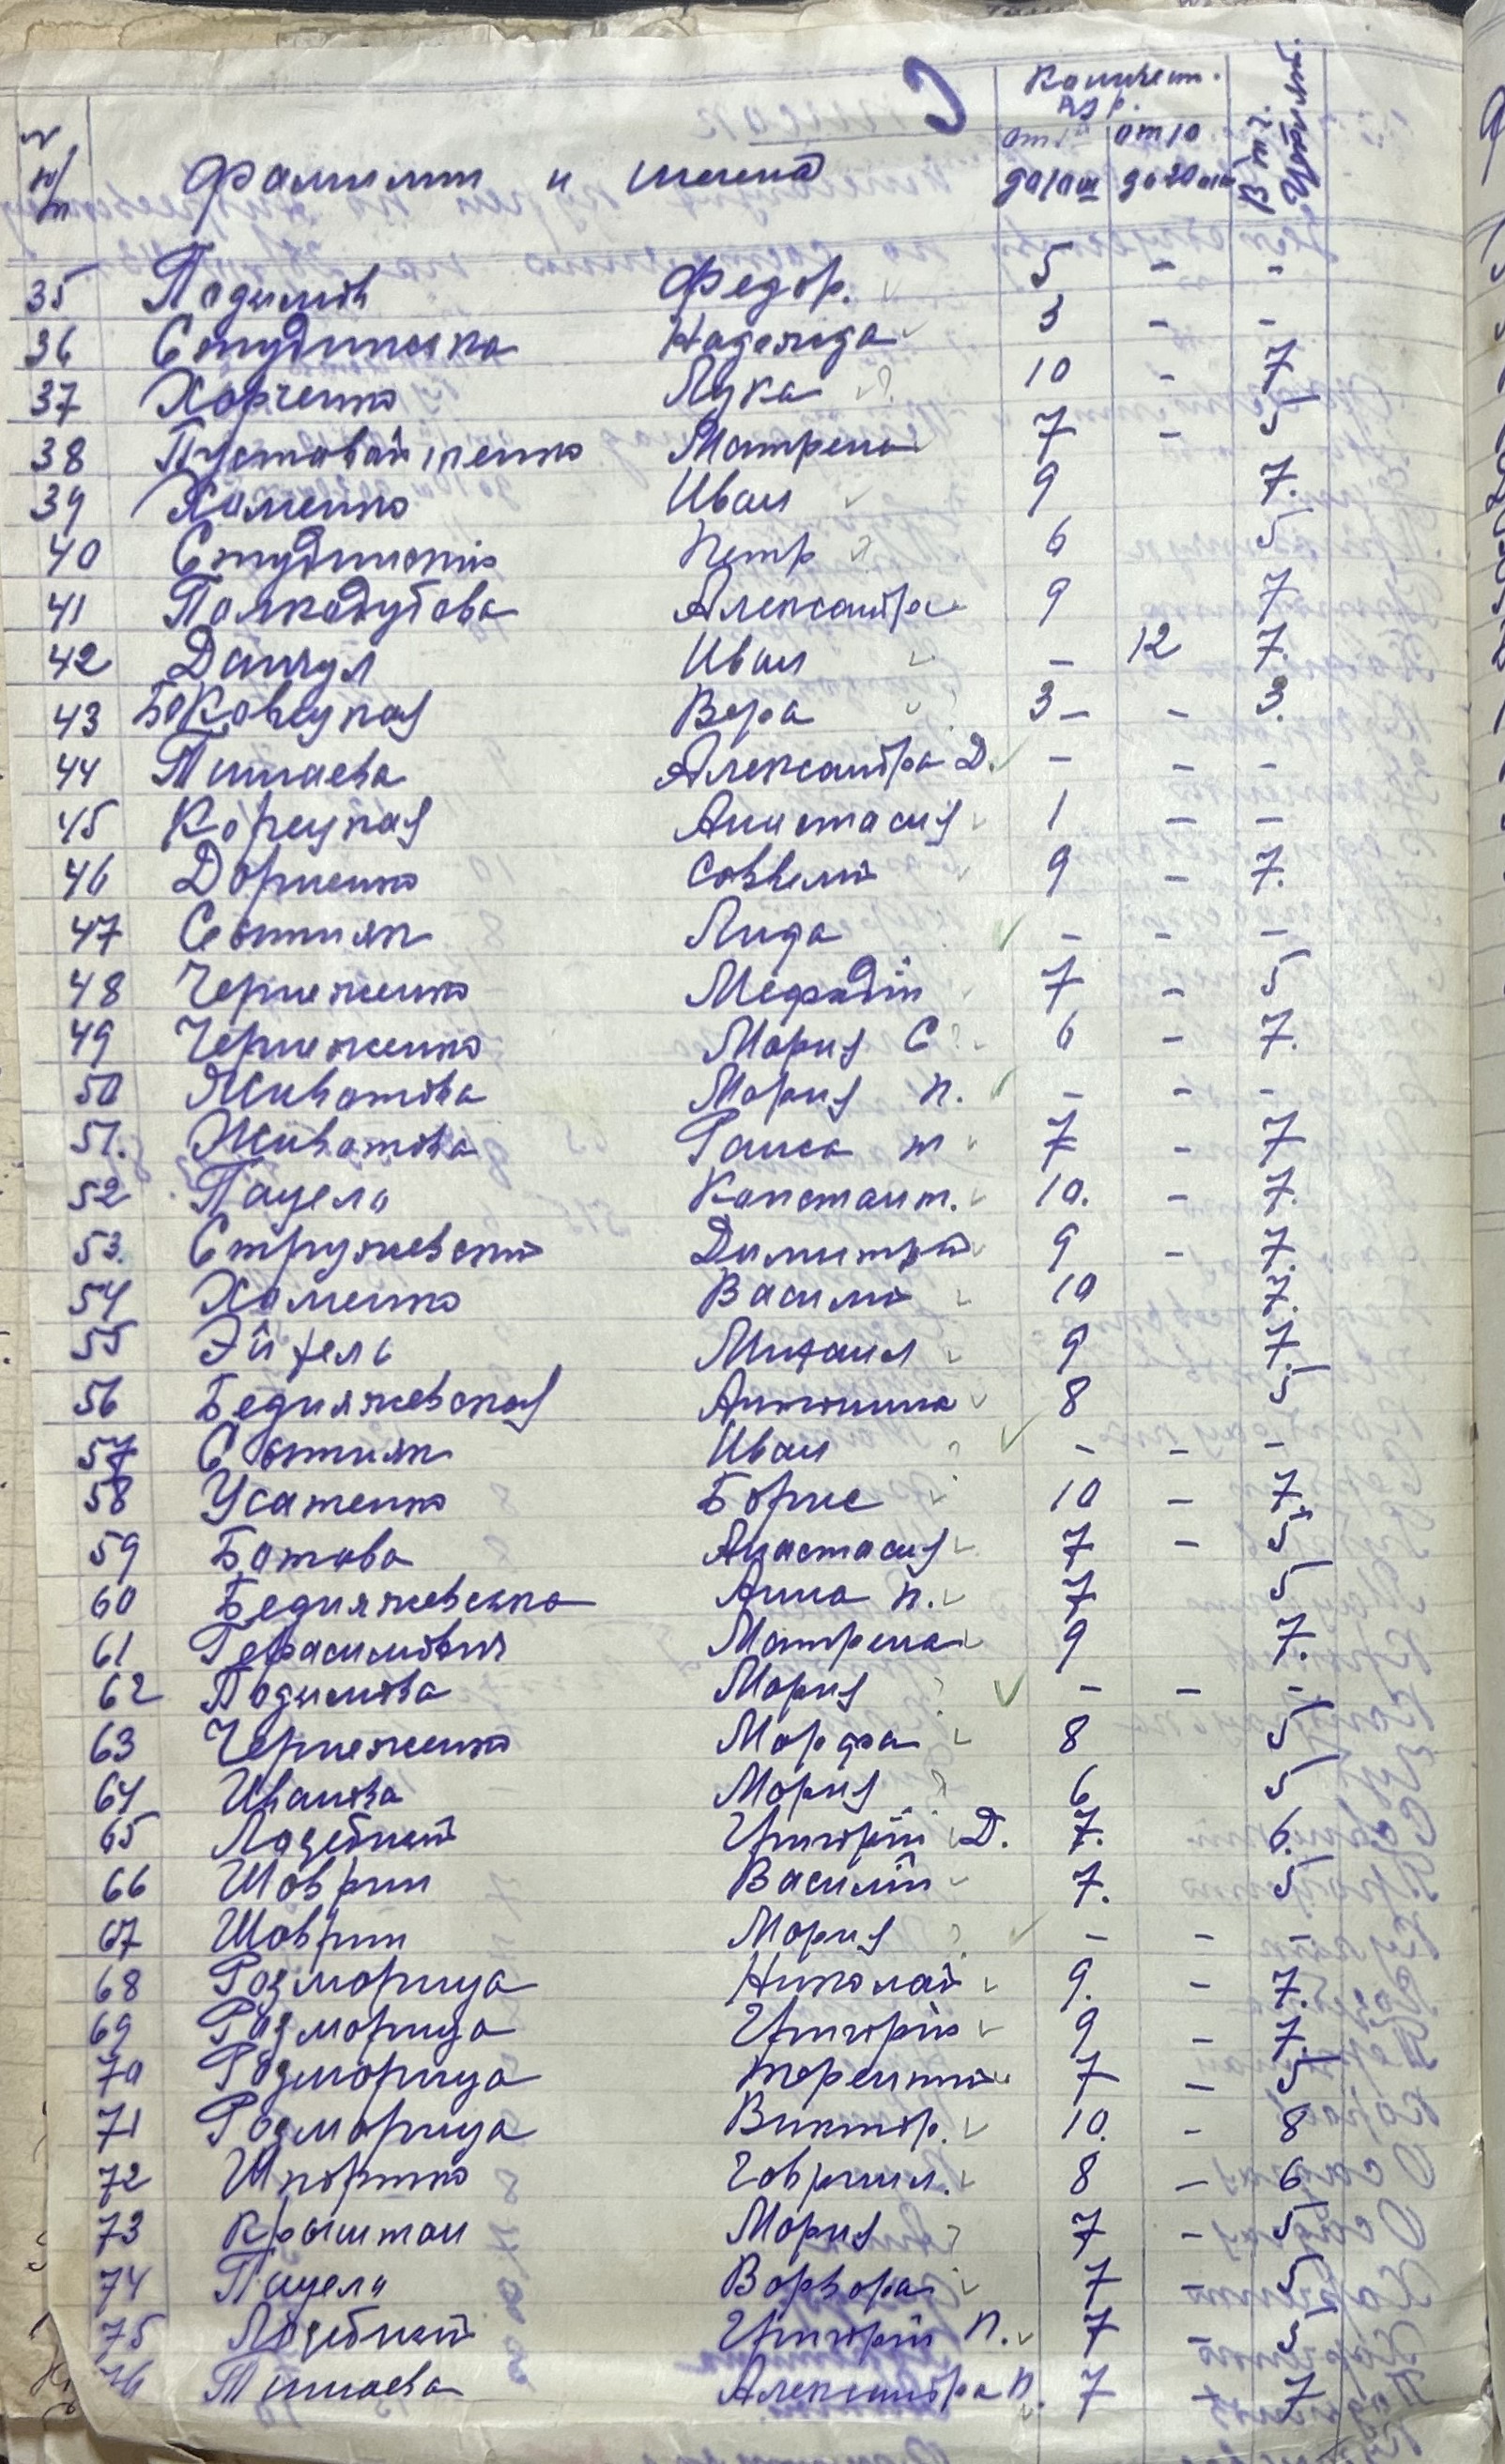 Количест.
кур.
№ п/п Фамилия и имена от 1 до 10 шт от 10 до 20 шт В т.ч.
35 Подымов Федор. 5 - -
36 Студинска Надежда 3 - -
37 Харченко Лука 10 - 7
38 Пустовойтенко Матрена 7 - 5
39 Хоменко Иван 9 7.
40 Студинскій Петр 6 5
41 Полкодубова Александра 9 7
42 Данчул Иван - 12 7.
43 Боковецкая Вера 3 - - 3.
44 Тишаева Александра Д. - - -
45 Корецкая Анастасия 1 - -
46 Дорненко Совелий 9 - 7.
47 Сытник Лида - - -
48 Чернеженко Мефодій 7 - 5
49 Чернеженко Мория С 6 - 7.
50 Животова Мория П. - - -
51. Животова Раиса т 7 - 7
52 Пацела Констант. 10. - 7.
53. Стружевский Димитрий 9 - 7.
54 Хоменко Василий 10 7.
55 Эйхель Михаил 9 7.
56 Бедняжевская Антонина 8 5
57 Сытник Иван - - -
58 Усатенко Борис 10 - 7.
59 Ботова Анастасия 7 - 5
60 Бедняжевська Анна П. 7 5
61 Герасимович Матрена 9 7.
62 Подымова Мория - - -
63 Чернеженко Морфа 8 5
64 Иванова Мория 6 5
65 Лозебный Григорій Д. 7. 6.
66 Шоврин Василій 7. 5
67 Шоврин Мория - - -
68 Розморица Николай 9. - 7.
69 Розморица Григорій 9 - 7.
70 Розморица Терентий 7 - 5
71 Розморица Виктор. 10. - 8
72 Шпортко Говриил. 8 - 6
73 Крыштон Мория 7 - 5
74 Пацела Ворвора 7 - 5
75 Лозебный Григорій П. 7 - 5
76 Тишаева Александра П. 7 - 7